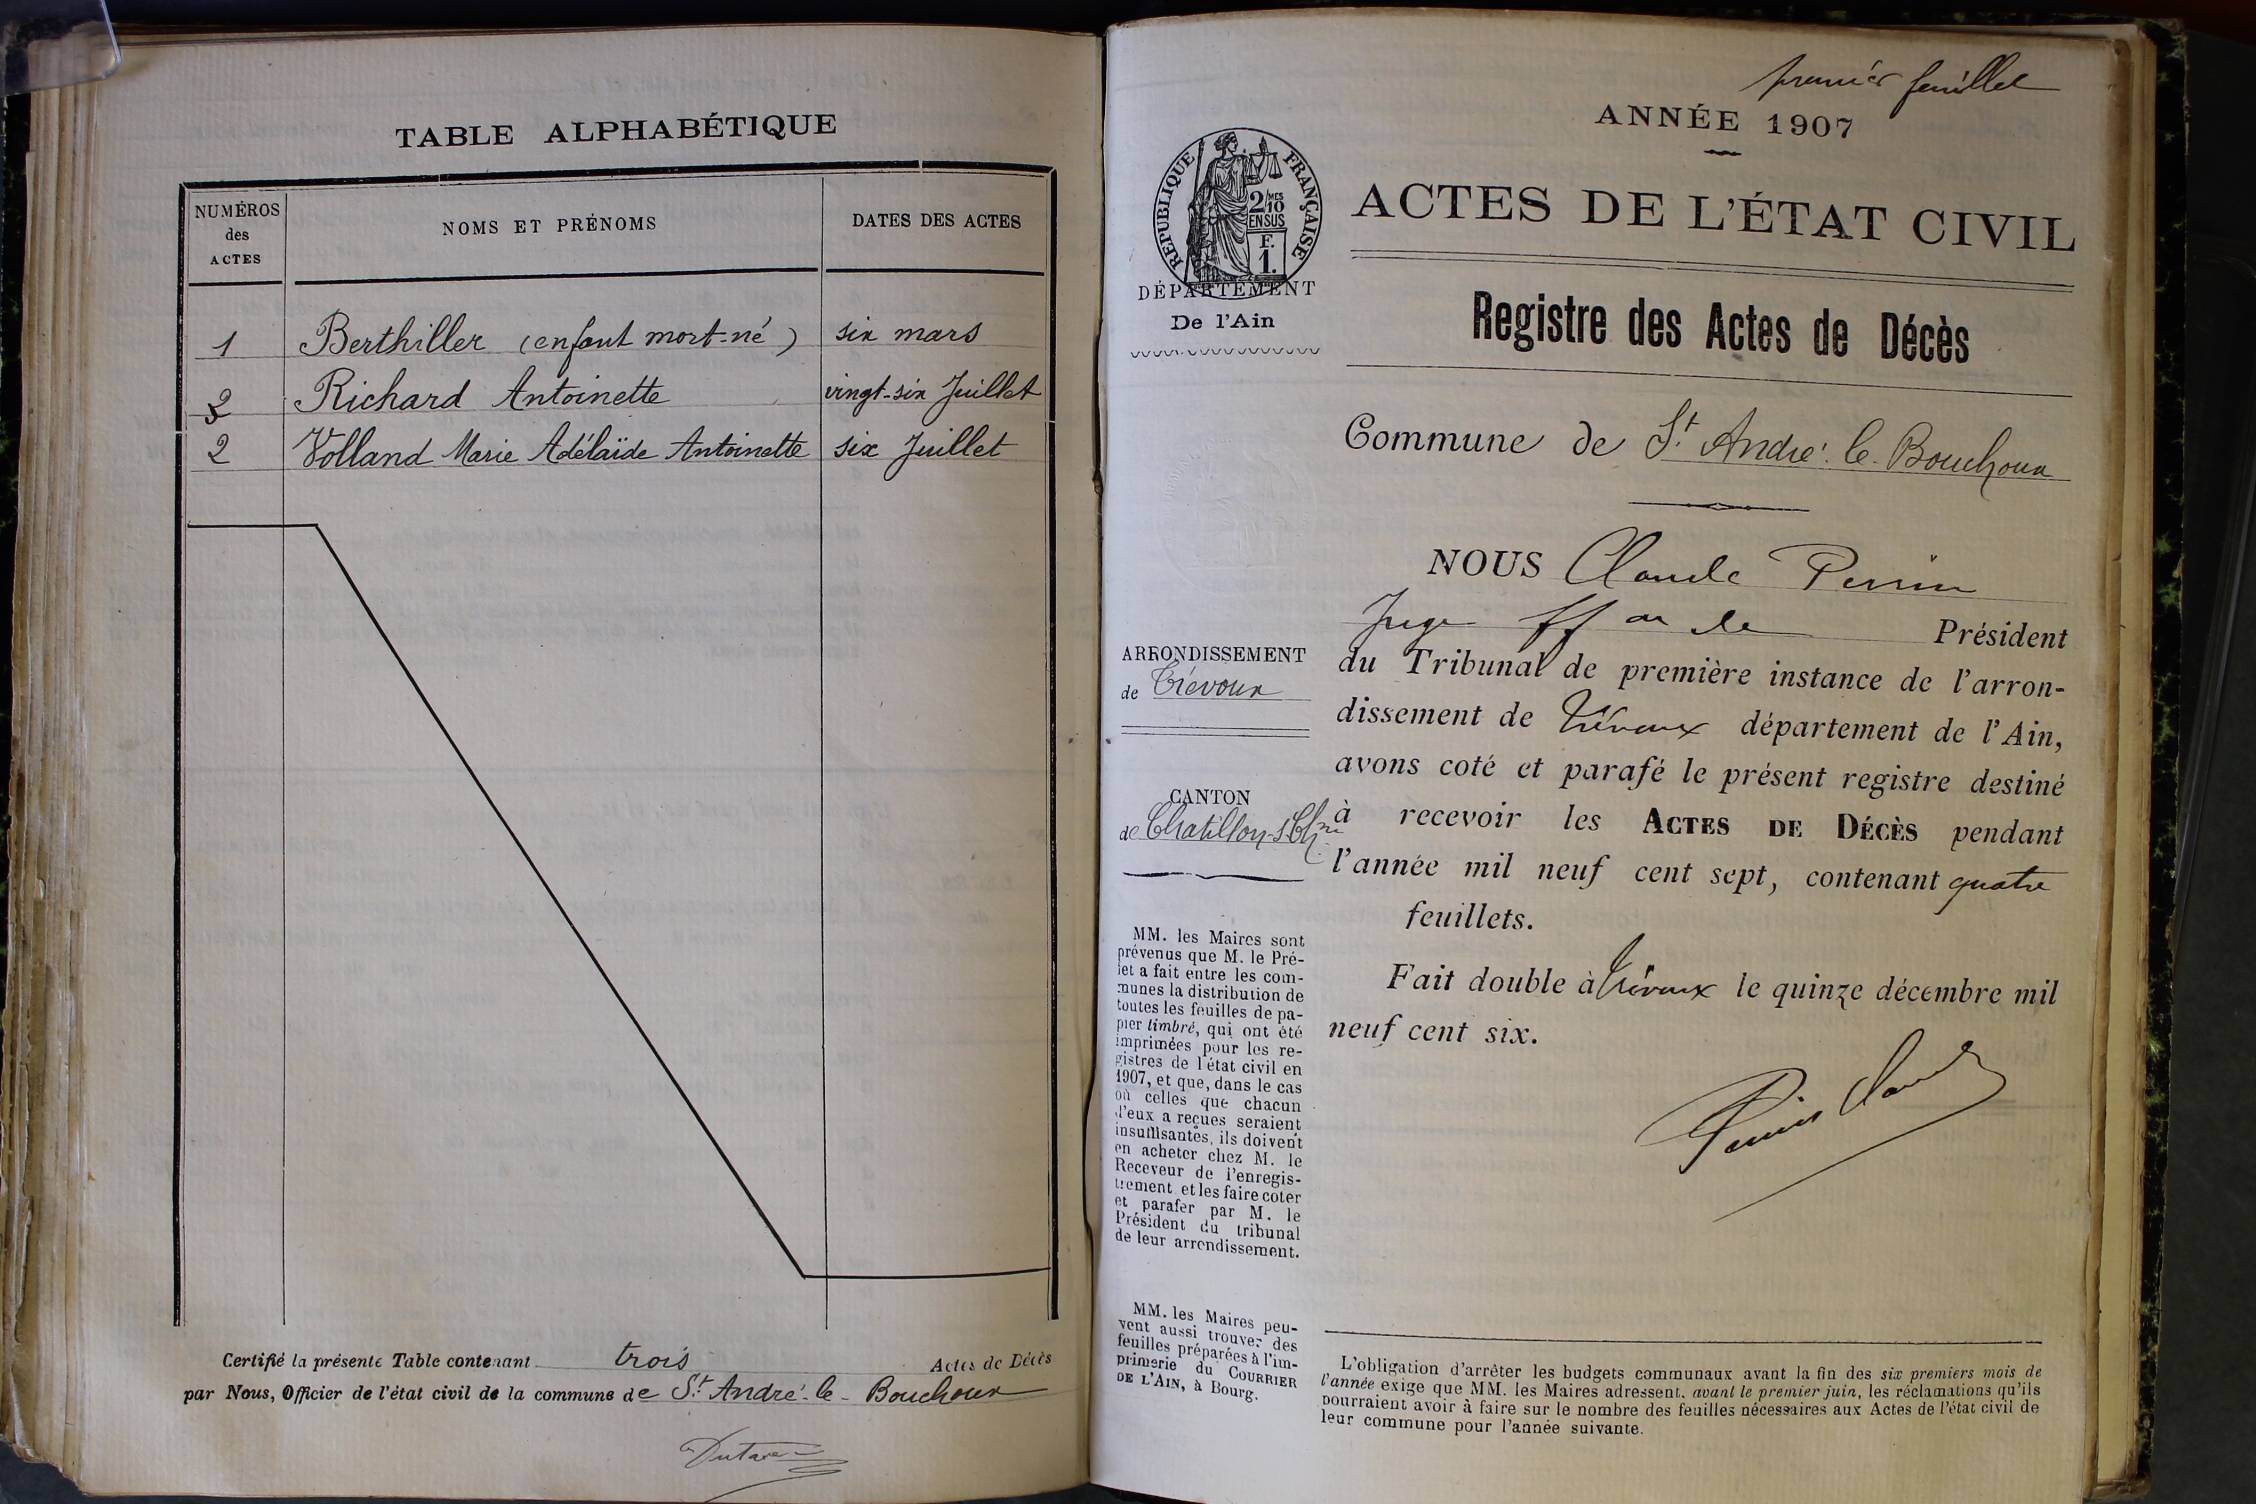 TABLE ALPHABÉTIQUE
NUMÉROS
des
ACTES
NOMS ET PRÉNOMS
DATES DES ACTES
1 Berthiller (enfant mort-né) six mars
3 Richard Antoinette vingt-six Juillet
2 Volland Marie Adélaïde Antoinette six Juillet
Certifié la présente Table contenant trois Actes de Décès
par Nous, Officier de l'état civil de la commune de St André-le-Bouchoux
premier feuillet
ANNÉE 1907
RÉPUBLIQUE FRANÇAISE
2/10 MES
EN SUS
F.
1.
DÉPARTEMENT
De l'Ain
ACTES DE L'ÉTAT CIVIL
Registre des Actes de Décès
Commune de St André-le-Bouchoux
NOUS Claude Perrin
Juge ff on de Président
du Tribunal de première instance de l'arron-
dissement de Trévoux département de l'Ain,
avons coté et parafé le présent registre destiné
à recevoir les ACTES DE DÉCÈS pendant
l'année mil neuf cent sept, contenant quatre
feuillets.
Fait double à Trévoux le quinze décembre mil
neuf cent six.
Perrin Claude
ARRONDISSEMENT
de Trévoux
CANTON
de Chatillon-s-Chne
MM. les Maires sont
prévenus que M. le Pré-
fet a fait entre les com-
munes la distribution de
toutes les feuilles de pa-
pier timbré, qui ont été
imprimées pour les re-
gistres de l'état civil en
1907, et que, dans le cas
où celles que chacun
d'eux a reçues seraient
insuffisantes, ils doivent
en acheter chez M. le
Receveur de l'enregis-
trement et les faire coter
et parafer par M. le
Président du tribunal
de leur arrondissement.
MM. les Maires peu-
vent aussi trouver des
feuilles préparées à l'im-
primerie du COURRIER
DE L'AIN, à Bourg.
L'obligation d'arrêter les budgets communaux avant la fin des six premiers mois de
l'année exige que MM. les Maires adressent, avant le premier juin, les réclamations qu'ils
pourraient avoir à faire sur le nombre des feuilles nécessaires aux Actes de l'état civil de
leur commune pour l'année suivante.